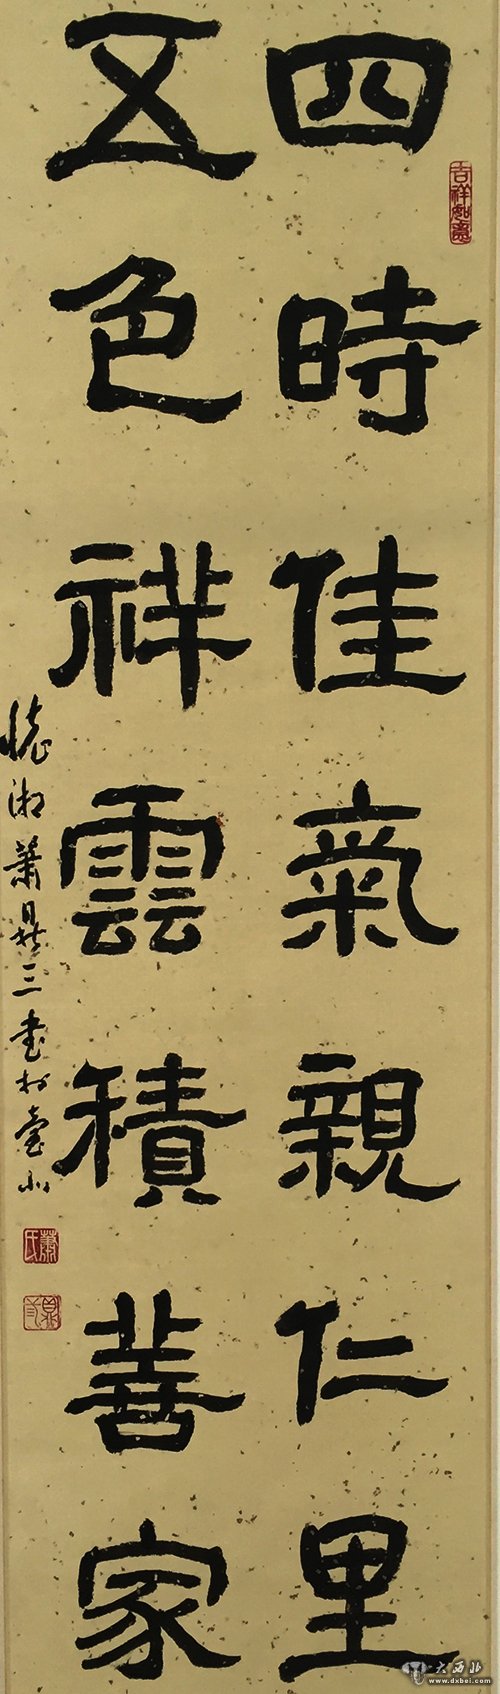 四時佳氣親仁里
五色祥雲積善家
湘蕭鼎三書於臺北
吉祥如意
蕭氏
大西北
www.dxbei.com